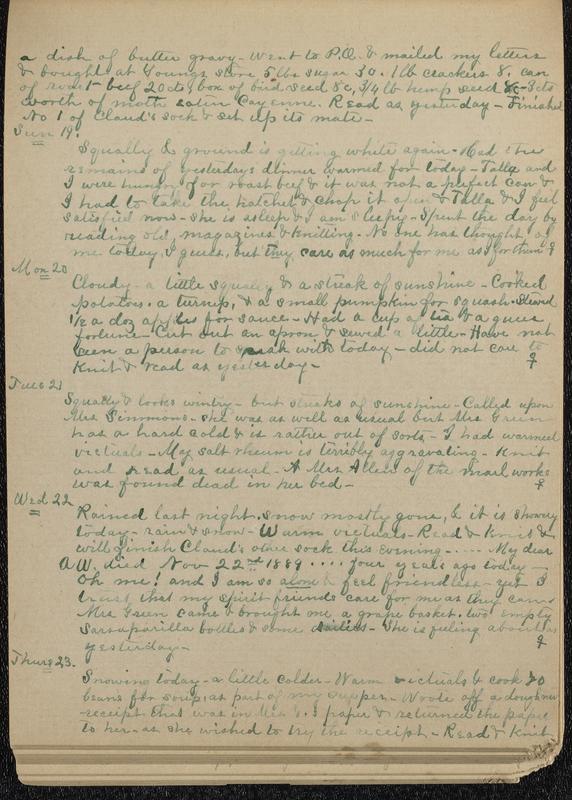 a dish of butter gravy - Went to P.O. & mailed my letters
& bought at Youngs store 5 lbs sugar 30. 1 lb crackers 8. can
of roast beef 20 cts, box of bird seed 8c, 3/4 lb hemp seed 8c - 3cts
worth of moth Cayenne. Read as yesterday - Finished
No 1 of Claud's sock & set up its mate -
Sun 19.
Squally & ground is getting white again. Had the
remains of yesterdays dinner warmed for today - Talla and
I were hungry for roast beef & it was not a perfect can &
I had to take the hatchet & chop it open & Talla & I feel
satisfied now - she is asleep & I am sleepy - Spent the day by
reading old magazines & knitting. No one has thought of
me today I guess, but they care as much for me as I for them
Mon 20
Cloudy - a little squally & a streak of sunshine - Cooked
potatoes. a turnip, & a small pumpkin for squash. Stewed
1/2 a doz apples for sauce - Had a cup of tea & a queer
fortune - Cut out an apron & sewed a little - Have not
seen a person to speak with today - did not care to
Knit & read as yesterday -
Tues 21
Squally & looks wintry - but streaks of sunshine - Called upon
Mrs Simmons. she was as well as usual but Mrs Green
has a hard cold & is rather out of sorts - I had warmed
victuals - My salt rheum is terribly aggravating - Knit
and read as usual - A Mrs Allen of the marl works
was found dead in her bed -
Wed 22
Rained last night. snow mostly gone, & it is showery
today - rain & snow - Warm victuals - Read & Knit &
will finish Claud's other sock this evening - .... My dear
A W. died Nov 22nd 1889 .... four years ago today -
Oh me! and I am so alone & feel friendless - yet I
trust that my spirit friends care for me as they can -
Mrs Green came & brought me a grape basket. two empty
Sarsaparilla bottles & some - She is feeling about as
yesterday -
Thurs 23.
Snowing today - a little colder - Warm victuals & cook 20
beans for soup, as part of my supper - Wrote off a doughnut
receipt that was in Mrs G.s paper & returned the paper
to her - as she wished to try the receipt - Read & Knit